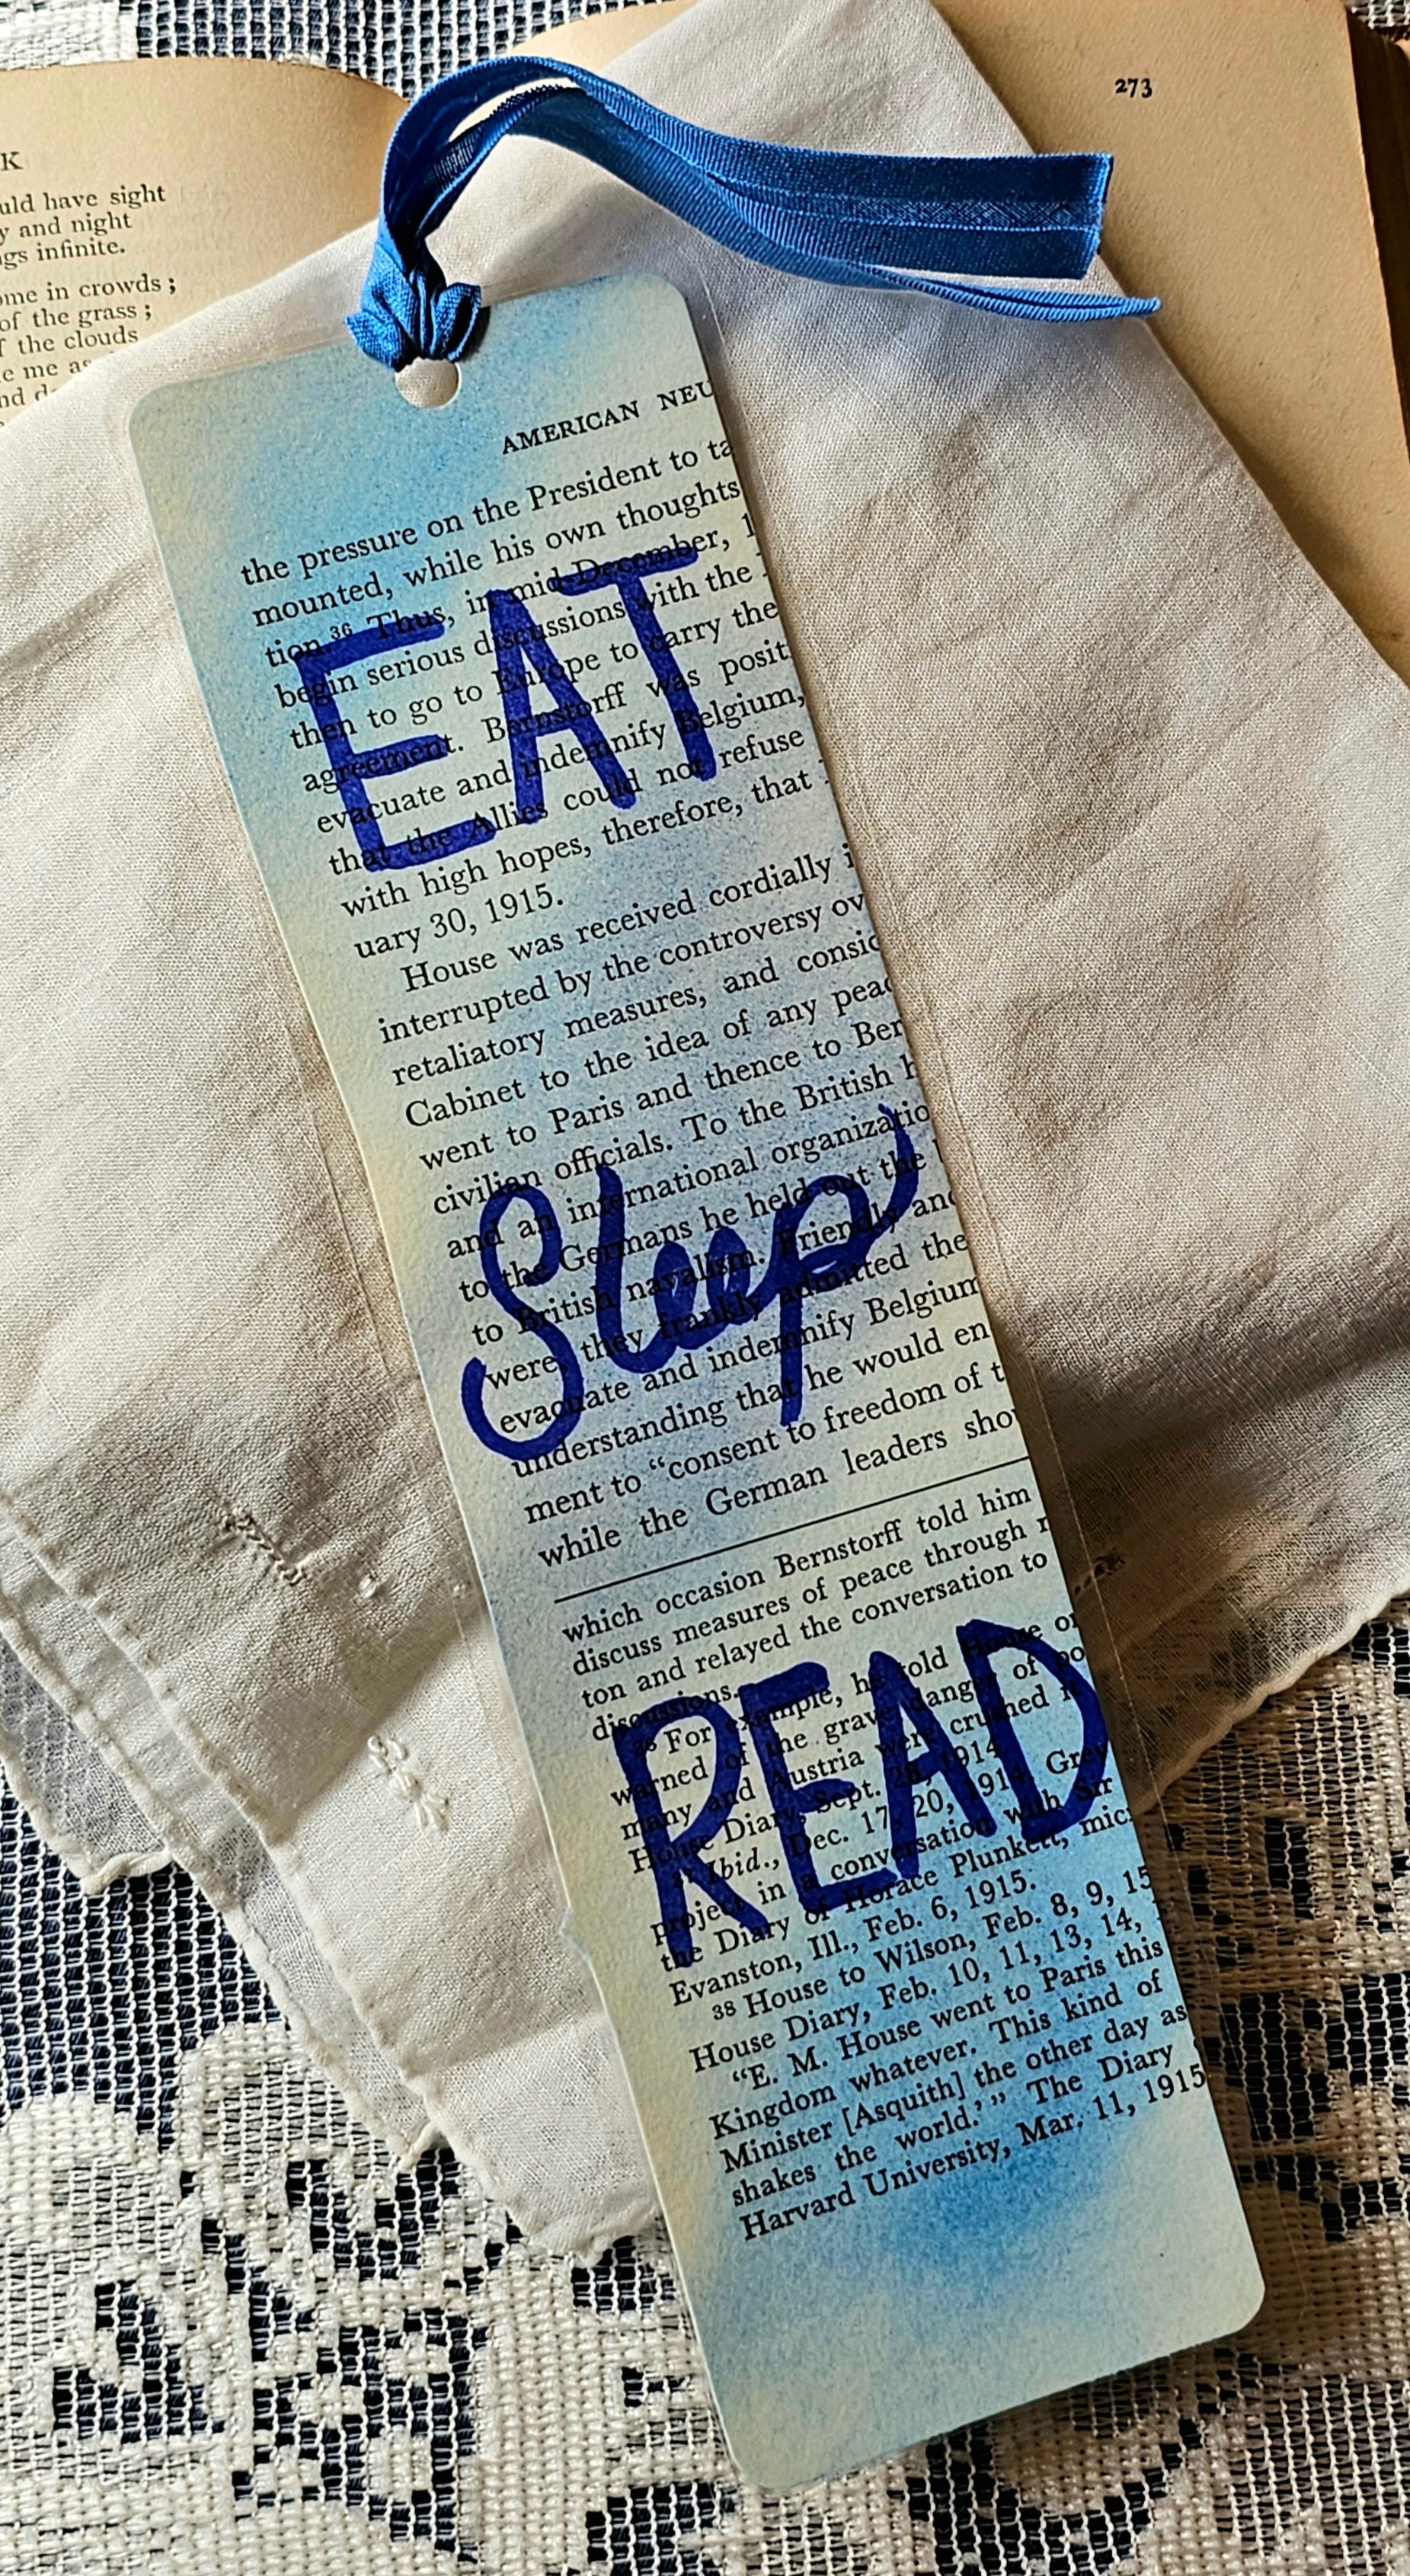 273
K
uld have sight
y and night
gs infinite.
ome in crowds;
of the grass;
f the clouds
e me as
nd d
AMERICAN NEU
the pressure on the President to ta
mounted, while his own thoughts
tion.36 Thus, in mid-December, 1
begin serious discussions with the
then to go to Europe to carry the
agreement. Bernstorff was posit
evacuate and indemnify Belgium,
that the Allies could not refuse
with high hopes, therefore, that
uary 30, 1915.
EAT
House was received cordially i
interrupted by the controversy ov
retaliatory measures, and consid
Cabinet to the idea of any peac
went to Paris and thence to Ber
civilian officials. To the British h
and an international organizatio
to the Germans he held out the
to British navalism. Friendly and
were, they frankly admitted the
evacuate and indemnify Belgium
understanding that he would en
ment to “consent to freedom of t
while the German leaders sho
Sleep
which occasion Bernstorff told him
discuss measures of peace through r
ton and relayed the conversation to
discussions.
36 For example, he told House or
warned of the grave danger of po
many and Austria were crushed
House Diary, Sept. 1914
Ibid., Dec. 17, 20, 1914. Grey
project in a conversation with Sir
the Diary of Horace Plunkett, micr
Evanston, Ill., Feb. 6, 1915.
38 House to Wilson, Feb. 8, 9, 15
House Diary, Feb. 10, 11, 13, 14,
“E. M. House went to Paris this
Kingdom whatever. This kind of
Minister [Asquith] the other day as
shakes the world.’ ” The Diary
Harvard University, Mar. 11, 1915
READ